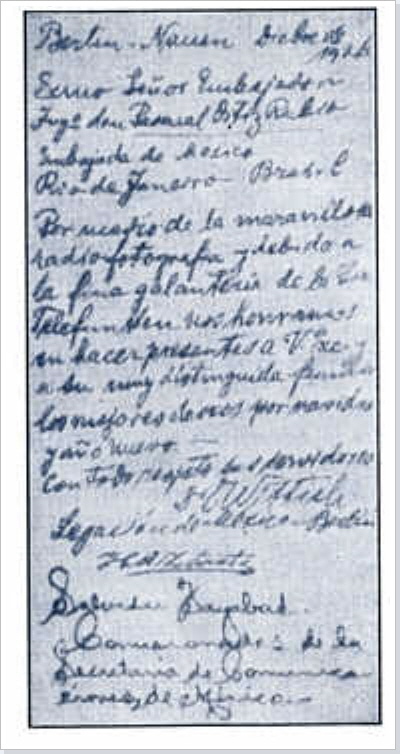 Berlin-Nauen Dicbre
Exmo Señor Embajador
Ingº don Pascual Ortiz Rubio
Embajada de Mexico
Rio de Janeiro - Brasil
Por medio de la maravillosa
radiofotografia y debido a
la fina galanteria de la
Telefunken nos honramos
en hacer presentes a V. Exc. y
a su muy distinguida familia
los mejores deseos por navidad
y año nuevo. -
Con todo respeto sus servidores
Legación de Mexico - Berlin
Salvador
Comisionados de la
Secretaria de Comunica-
ciones, de México. -